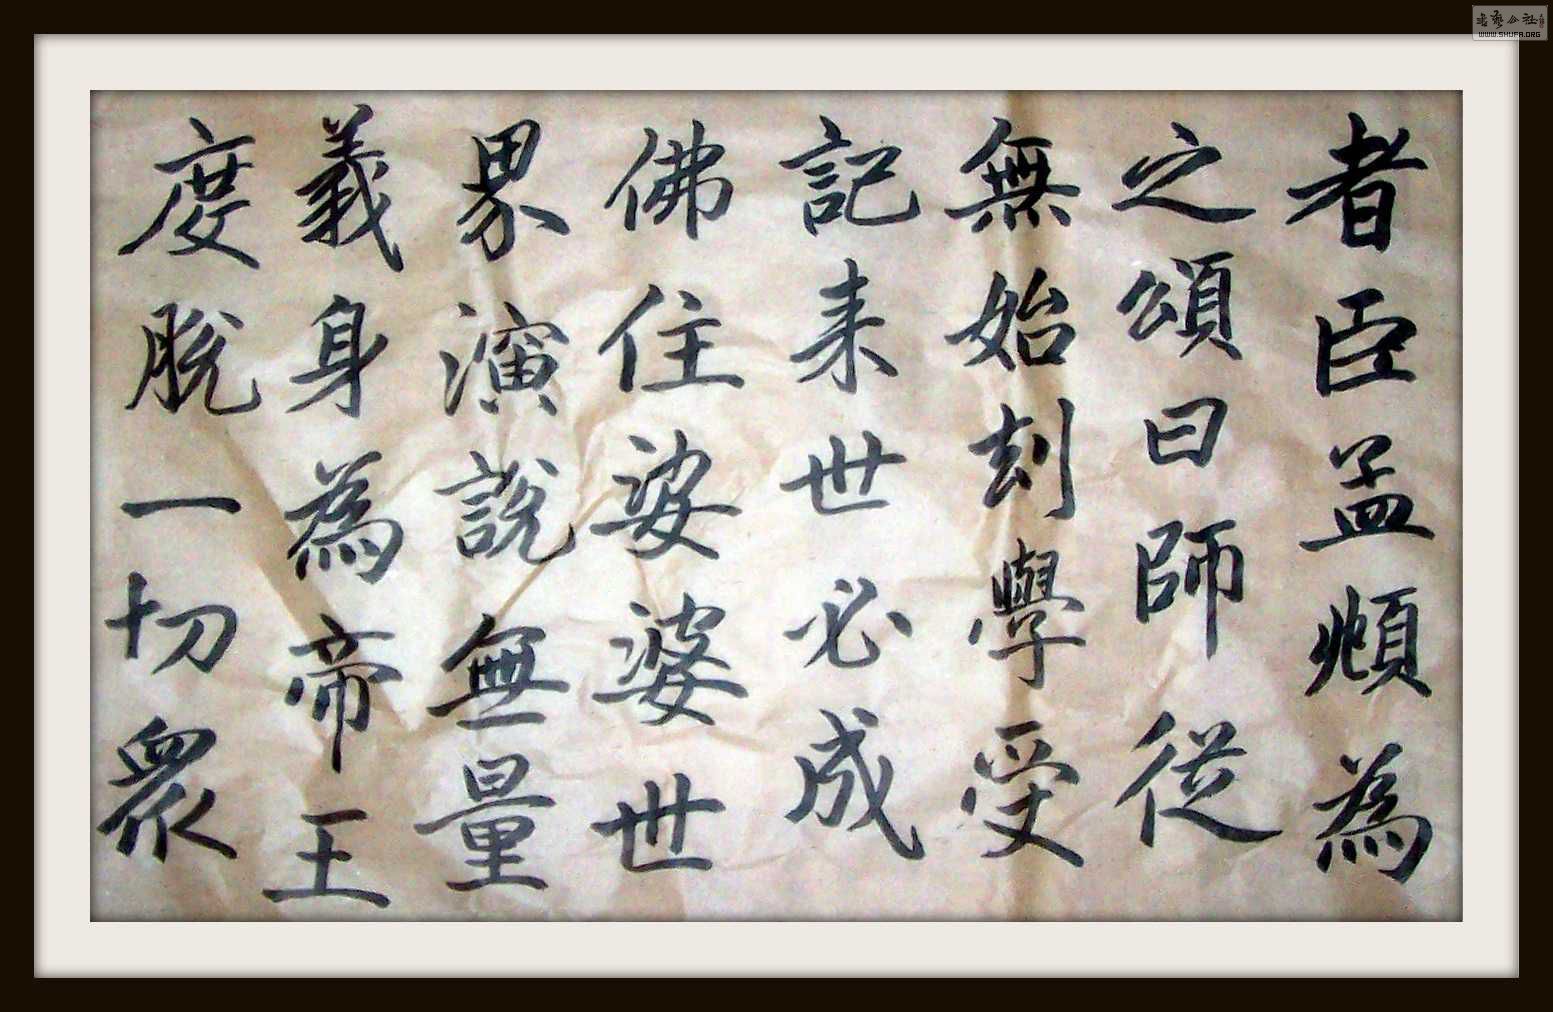 者臣孟頫為
之頌曰師從
無始刦學受
記来世必成
佛住娑婆世
界演說無量
義身為帝王
度脫一切眾
WWW.SHUFA.ORG